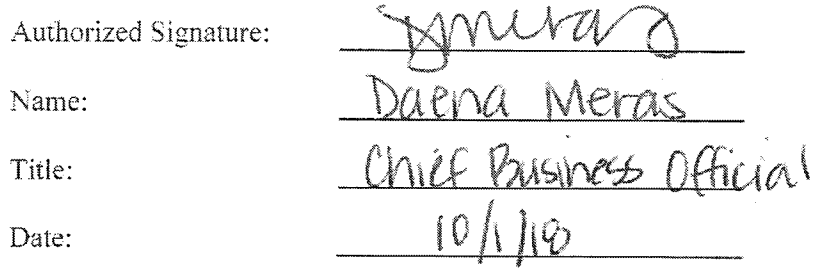 Authorized Signature: DMeras
Name: Daena Meras
Title: Chief Business Official
Date: 10/1/18